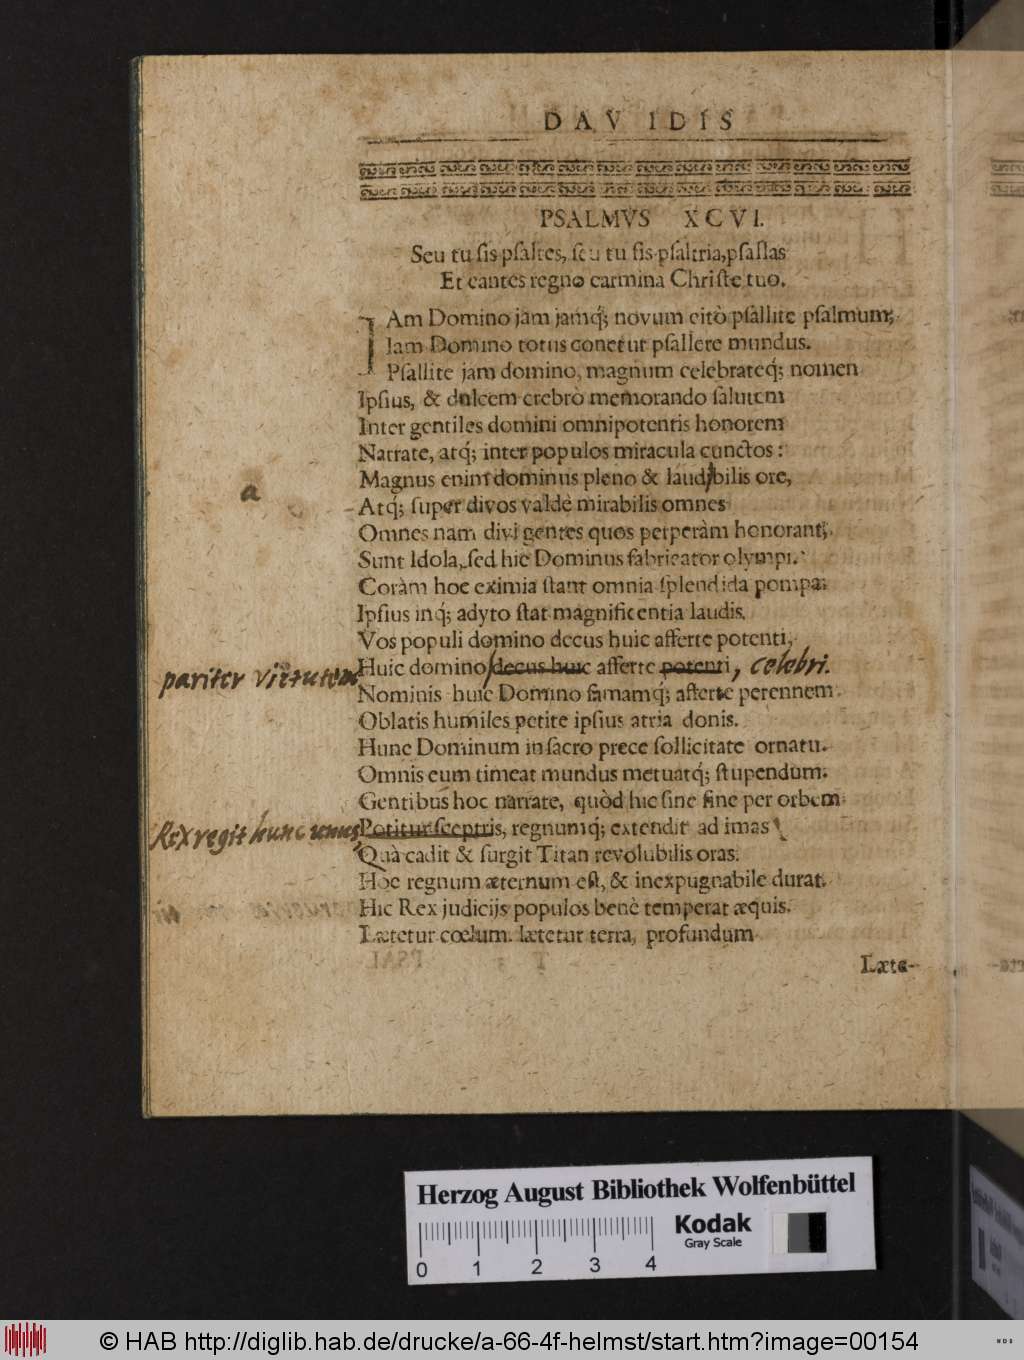 DAVIDIS
PSALMVS XCVI.
Seu tu ſis pſaltes, ſeu tu ſis pſaltria, pſallas
Et cantes regno carmina Chriſte tuo.
IAm Domino jam jamq́; novum citò pſallite pſalmum;
Iam Domino totus conetur pſallere mundus.
Pſallite jam domino, magnum celebrateq́; nomen
Ipſius, & dulcem crebrò memorando ſalutem
Inter gentiles domini omnipotentis honorem
Narrate, atq́; inter populos miracula cunctos:
Magnus enim dominus pleno & laudabilis ore,
a
Atq́; ſuper divos valdè mirabilis omnes
Omnes nam divi gentes quos perperàm honorant;
Sunt Idola, ſed hic Dominus fabricator olympi.
Coràm hoc eximia ſtant omnia ſplendida pompa:
Ipſius inq́; adyto ſtat magnificentia laudis.
Vos populi domino decus huic afferte potenti,
pariter virtutem Huic domino decus huic afferte potenti, celebri.
Nominis huic Domino famamq́; afferte perennem
Oblatis humiles petite ipſius atria donis.
Hunc Dominum in ſacro prece ſollicitate ornatu.
Omnis eum timeat mundus metuatq́; ſtupendum.
Gentibus hoc narrate, quòd hic ſine fine per orbem
Rex regit hunc unus, Potitur ſceptris, regnumq́; extendit ad imas
Quà cadit & ſurgit Titan revolubilis oras.
Hoc regnum æternum eſt, & inexpugnabile durat.
Hic Rex judicijs populos benè temperat æquis.
Lætetur cœlum. lætetur terra, profundum
Læte-
Herzog August Bibliothek Wolfenbüttel
Kodak
Gray Scale
0 1 2 3 4
© HAB http://diglib.hab.de/drucke/a-66-4f-helmst/start.htm?image=00154